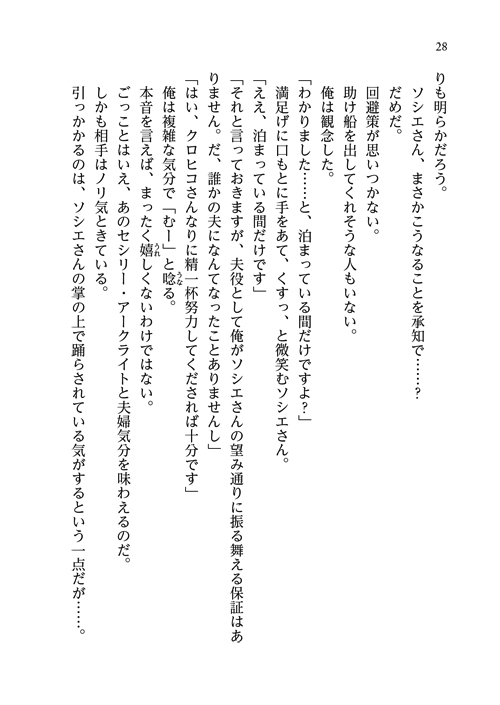 28
りも明らかだろう。
ソシエさん、まさかこうなることを承知で……？
だめだ。
回避策が思いつかない。
助け船を出してくれそうな人もいない。
俺は観念した。
「わかりました……と、泊まっている間だけですよ？」
満足げに口もとに手をあて、くすっ、と微笑むソシエさん。
「ええ、泊まっている間だけです」
「それと言っておきますが、夫役として俺がソシエさんの望み通りに振る舞える保証はあ
りません。だ、誰かの夫になんてなったことありませんし」
「はい、クロヒコさんなりに精一杯努力してくだされば十分です」
俺は複雑な気分で「むー」と唸る。
本音を言えば、まったく嬉しくないわけではない。
ごっことはいえ、あのセシリー・アークライトと夫婦気分を味わえるのだ。
しかも相手はノリ気ときている。
引っかかるのは、ソシエさんの掌の上で踊らされている気がするという一点だが……。